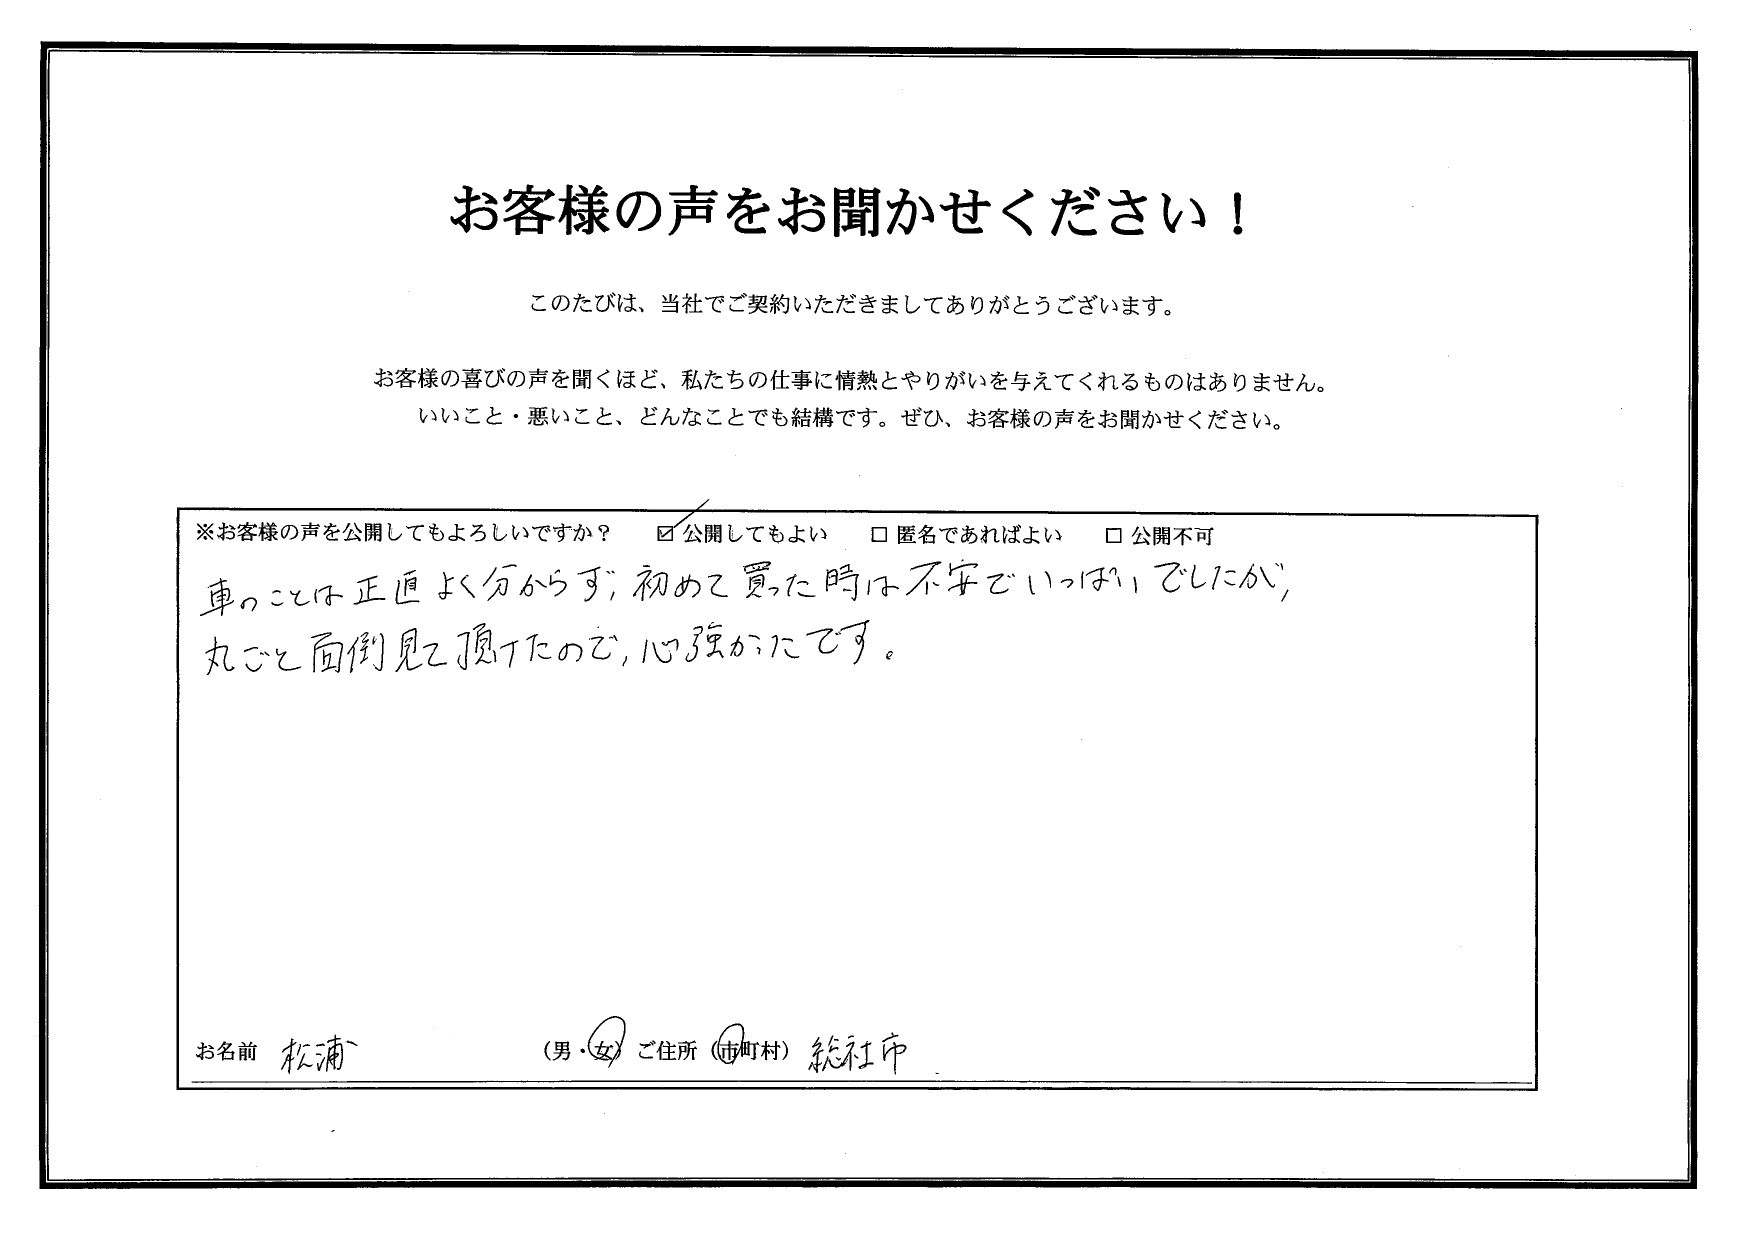 お客様の声をお聞かせください！
このたびは、当社でご契約いただきましてありがとうございます。
お客様の喜びの声を聞くほど、私たちの仕事に情熱とやりがいを与えてくれるものはありません。
いいこと・悪いこと、どんなことでも結構です。ぜひ、お客様の声をお聞かせください。
※お客様の声を公開してもよろしいですか？ ☑ 公開してもよい □ 匿名であればよい □ 公開不可
車のことは正直よく分からず,初めて買った時は不安でいっぱいでしたが,
丸ごと面倒見て頂けたので,心強かったです。
お名前 松浦 （男・女） ご住所（市町村） 総社市